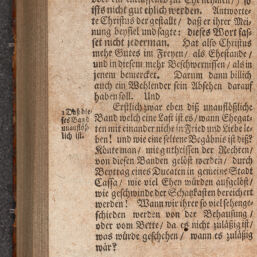 ists nicht ehlich werden. Antworte-
te Christus der gestalt / daß er ihrer Mei-
nung beyfiel und sagte: dieses Wort fas-
set nicht jederman. Hat also Christus
mehr Gutes im Freyen / als Ehestande /
und in diesem mehr Beschwernissen / als in
jenem bemercket. Darum dann billich
auch ein Wehlender sein Absehen darauf
haben soll. Und
Erstlich zwar eben diß unauflößliche
Band welch eine Last ist es / wann Ehegat-
ten mit einander nicht in Fried und Liebe le-
ben! und wie eine seltene Begabniß ist diß?
von diesen Banden gelöst werden / durch
Beytrag eines Ducaten in gemeine Stadt
Cassa / wie viel Ehen würden aufgelöst /
wie geschwinde der Schatzkasten bereichert
werden! Wann wir ihre so viel sehen ge-
schieden werden von der Behausung /
oder vom Bette / da es nicht zuläßig ist /
was würde geschehen / wann es zuläßig
wär?
1. Daß die-
ses Band
unauflöß-
lich ist.